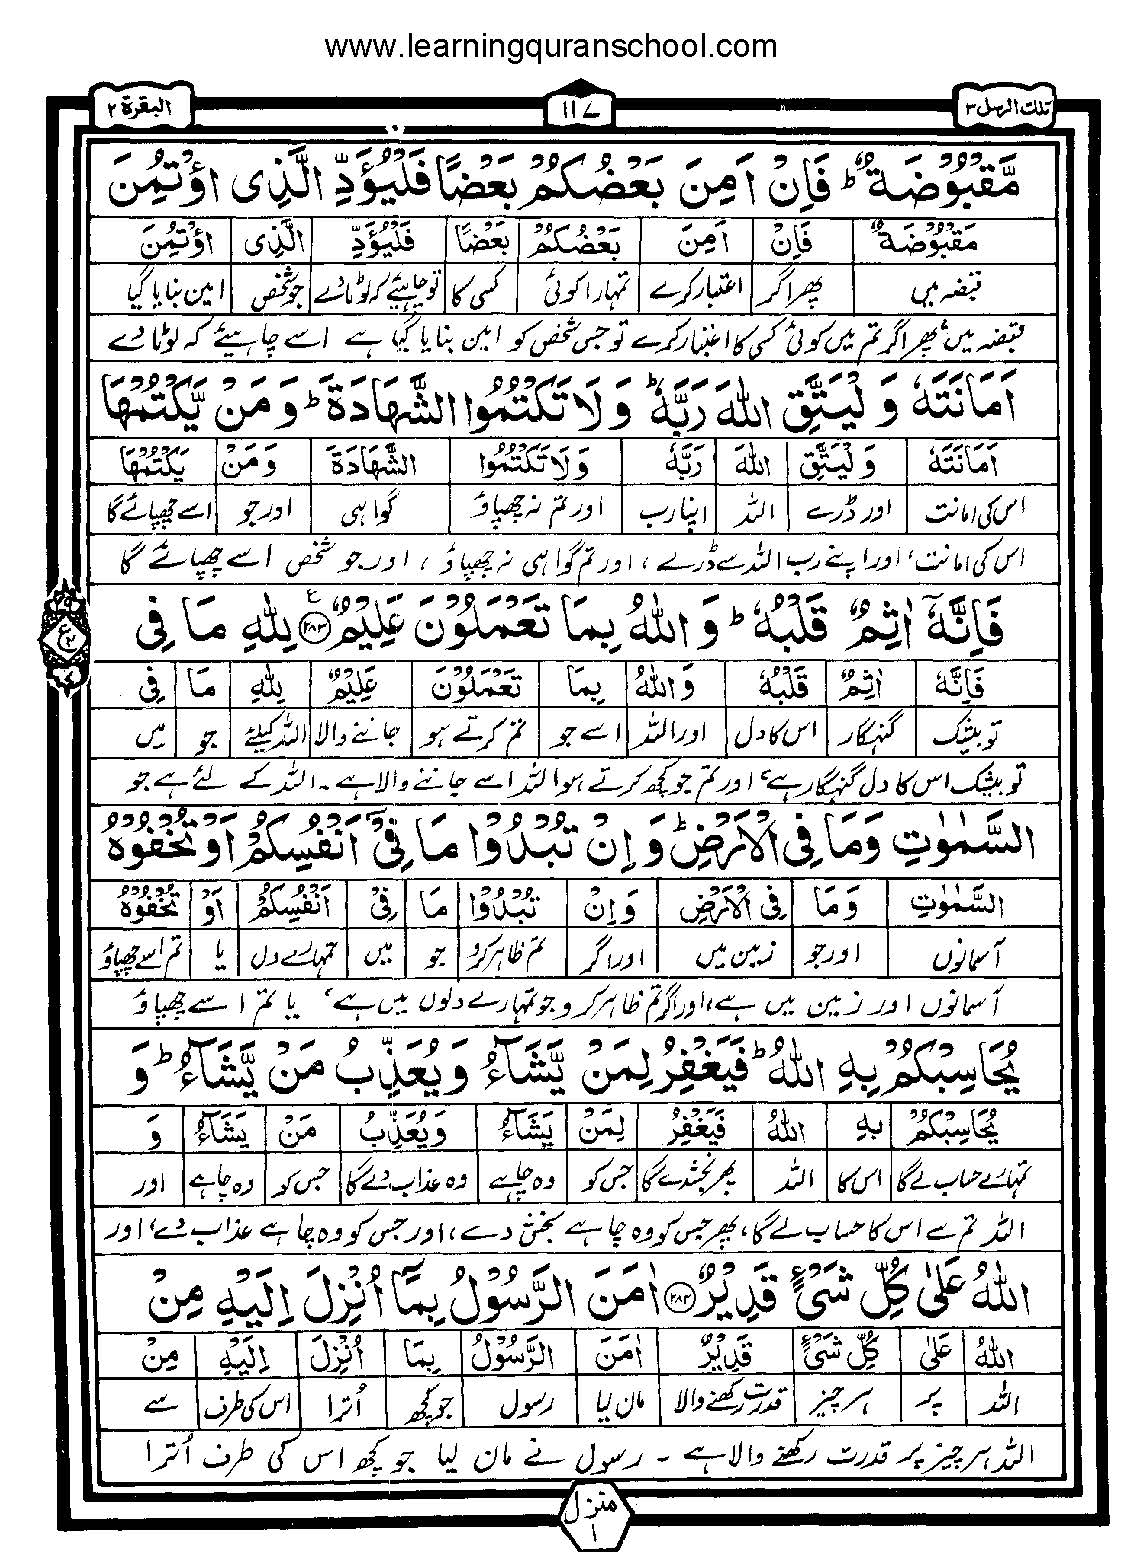 www.learningquranschool.com
تلك الرسل ۳
۱۱۷
البقرة ۲
مَّقْبُوْضَةٌ ؕ فَاِنْ اَمِنَ بَعْضُكُمْ بَعْضًا فَلْيُؤَدِّ الَّذِى اؤْتُمِنَ
مَقْبُوْضَةٌ فَاِنْ اَمِنَ بَعْضُكُمْ بَعْضًا فَلْيُؤَدِّ الَّذِى اؤْتُمِنَ
قبضہ میں پھر اگر اعتبار کرے تمہارا کوئی کسی کا تو چاہیئے کہ لوٹا دے جو شخص امین بنایا گیا
قبضہ میں، پھر اگر تم میں کوئی کسی کا اعتبار کرے تو جس شخص کو امین بنایا گیا ہے اسے چاہیئے کہ لوٹا دے
اَمَانَتَهٗ وَ لْيَتَّقِ اللهَ رَبَّهٗ ؕ وَ لَا تَكْتُمُوا الشَّهَادَةَ ؕ وَ مَنْ يَّكْتُمْهَا
اَمَانَتَهٗ وَ لْيَتَّقِ اللهَ رَبَّهٗ وَ لَا تَكْتُمُوا الشَّهَادَةَ وَ مَنْ يَكْتُمْهَا
اس کی امانت اور ڈرے اللہ اپنا رب اور تم نہ چھپاؤ گواہی اور جو اسے چھپائے گا
اس کی امانت، اور اپنے رب اللہ سے ڈرے، اور تم گواہی نہ چھپاؤ، اور جو شخص اسے چھپائے گا
فَاِنَّهٗۤ اٰثِمٌ قَلْبُهٗ ؕ وَ اللهُ بِمَا تَعْمَلُوْنَ عَلِيْمٌ ۲۸۳ ع لِلّٰهِ مَا فِى
فَاِنَّهٗ اٰثِمٌ قَلْبُهٗ وَ اللهُ بِمَا تَعْمَلُوْنَ عَلِيْمٌ لِلّٰهِ مَا فِى
تو بیشک گنہگار اس کا دل اور اللہ اسے جو تم کرتے ہو جاننے والا اللہ کیلئے جو میں
تو بیشک اس کا دل گنہگار ہے، اور تم جو کچھ کرتے ہو اللہ اسے جاننے والا ہے۔ اللہ کے لئے ہے جو
السَّمٰوٰتِ وَمَا فِى الْاَرْضِ ؕ وَ اِنْ تُبْدُوْا مَا فِىْۤ اَنْفُسِكُمْ اَوْ تُخْفُوْهُ
السَّمٰوٰتِ وَ مَا فِى الْاَرْضِ وَ اِنْ تُبْدُوْا مَا فِىْ اَنْفُسِكُمْ اَوْ تُخْفُوْهُ
آسمانوں اور جو زمین میں اور اگر تم ظاہر کرو جو میں تمہارے دل یا تم اسے چھپاؤ
آسمانوں اور زمین میں ہے، اور اگر تم ظاہر کرو جو تمہارے دلوں میں ہے، یا تم اسے چھپاؤ
يُحَاسِبْكُمْ بِهِ اللهُ ؕ فَيَغْفِرُ لِمَنْ يَّشَآءُ وَ يُعَذِّبُ مَنْ يَّشَآءُ ؕ وَ
يُحَاسِبْكُمْ بِهِ اللهُ فَيَغْفِرُ لِمَنْ يَشَآءُ وَ يُعَذِّبُ مَنْ يَشَآءُ وَ
تمہارے حساب لے گا اس کا اللہ پھر بخشدے گا جس کو وہ چاہے وہ عذاب دے گا جس کو وہ چاہے اور
اللہ تم سے اس کا حساب لے گا، پھر جس کو وہ چاہے بخش دے، اور جس کو وہ چاہے عذاب دے، اور
اللهُ عَلٰى كُلِّ شَىْءٍ قَدِيْرٌ ۲۸۴ اٰمَنَ الرَّسُوْلُ بِمَاۤ اُنْزِلَ اِلَيْهِ مِنْ
اللهُ عَلٰى كُلِّ شَىْءٍ قَدِيْرٌ اٰمَنَ الرَّسُوْلُ بِمَا اُنْزِلَ اِلَيْهِ مِنْ
اللہ پر ہر چیز قدرت رکھنے والا مان لیا رسول جو کچھ اُترا اس کی طرف سے
اللہ ہر چیز پر قدرت رکھنے والا ہے۔ رسول نے مان لیا جو کچھ اس کی طرف اُترا
منزل
۱